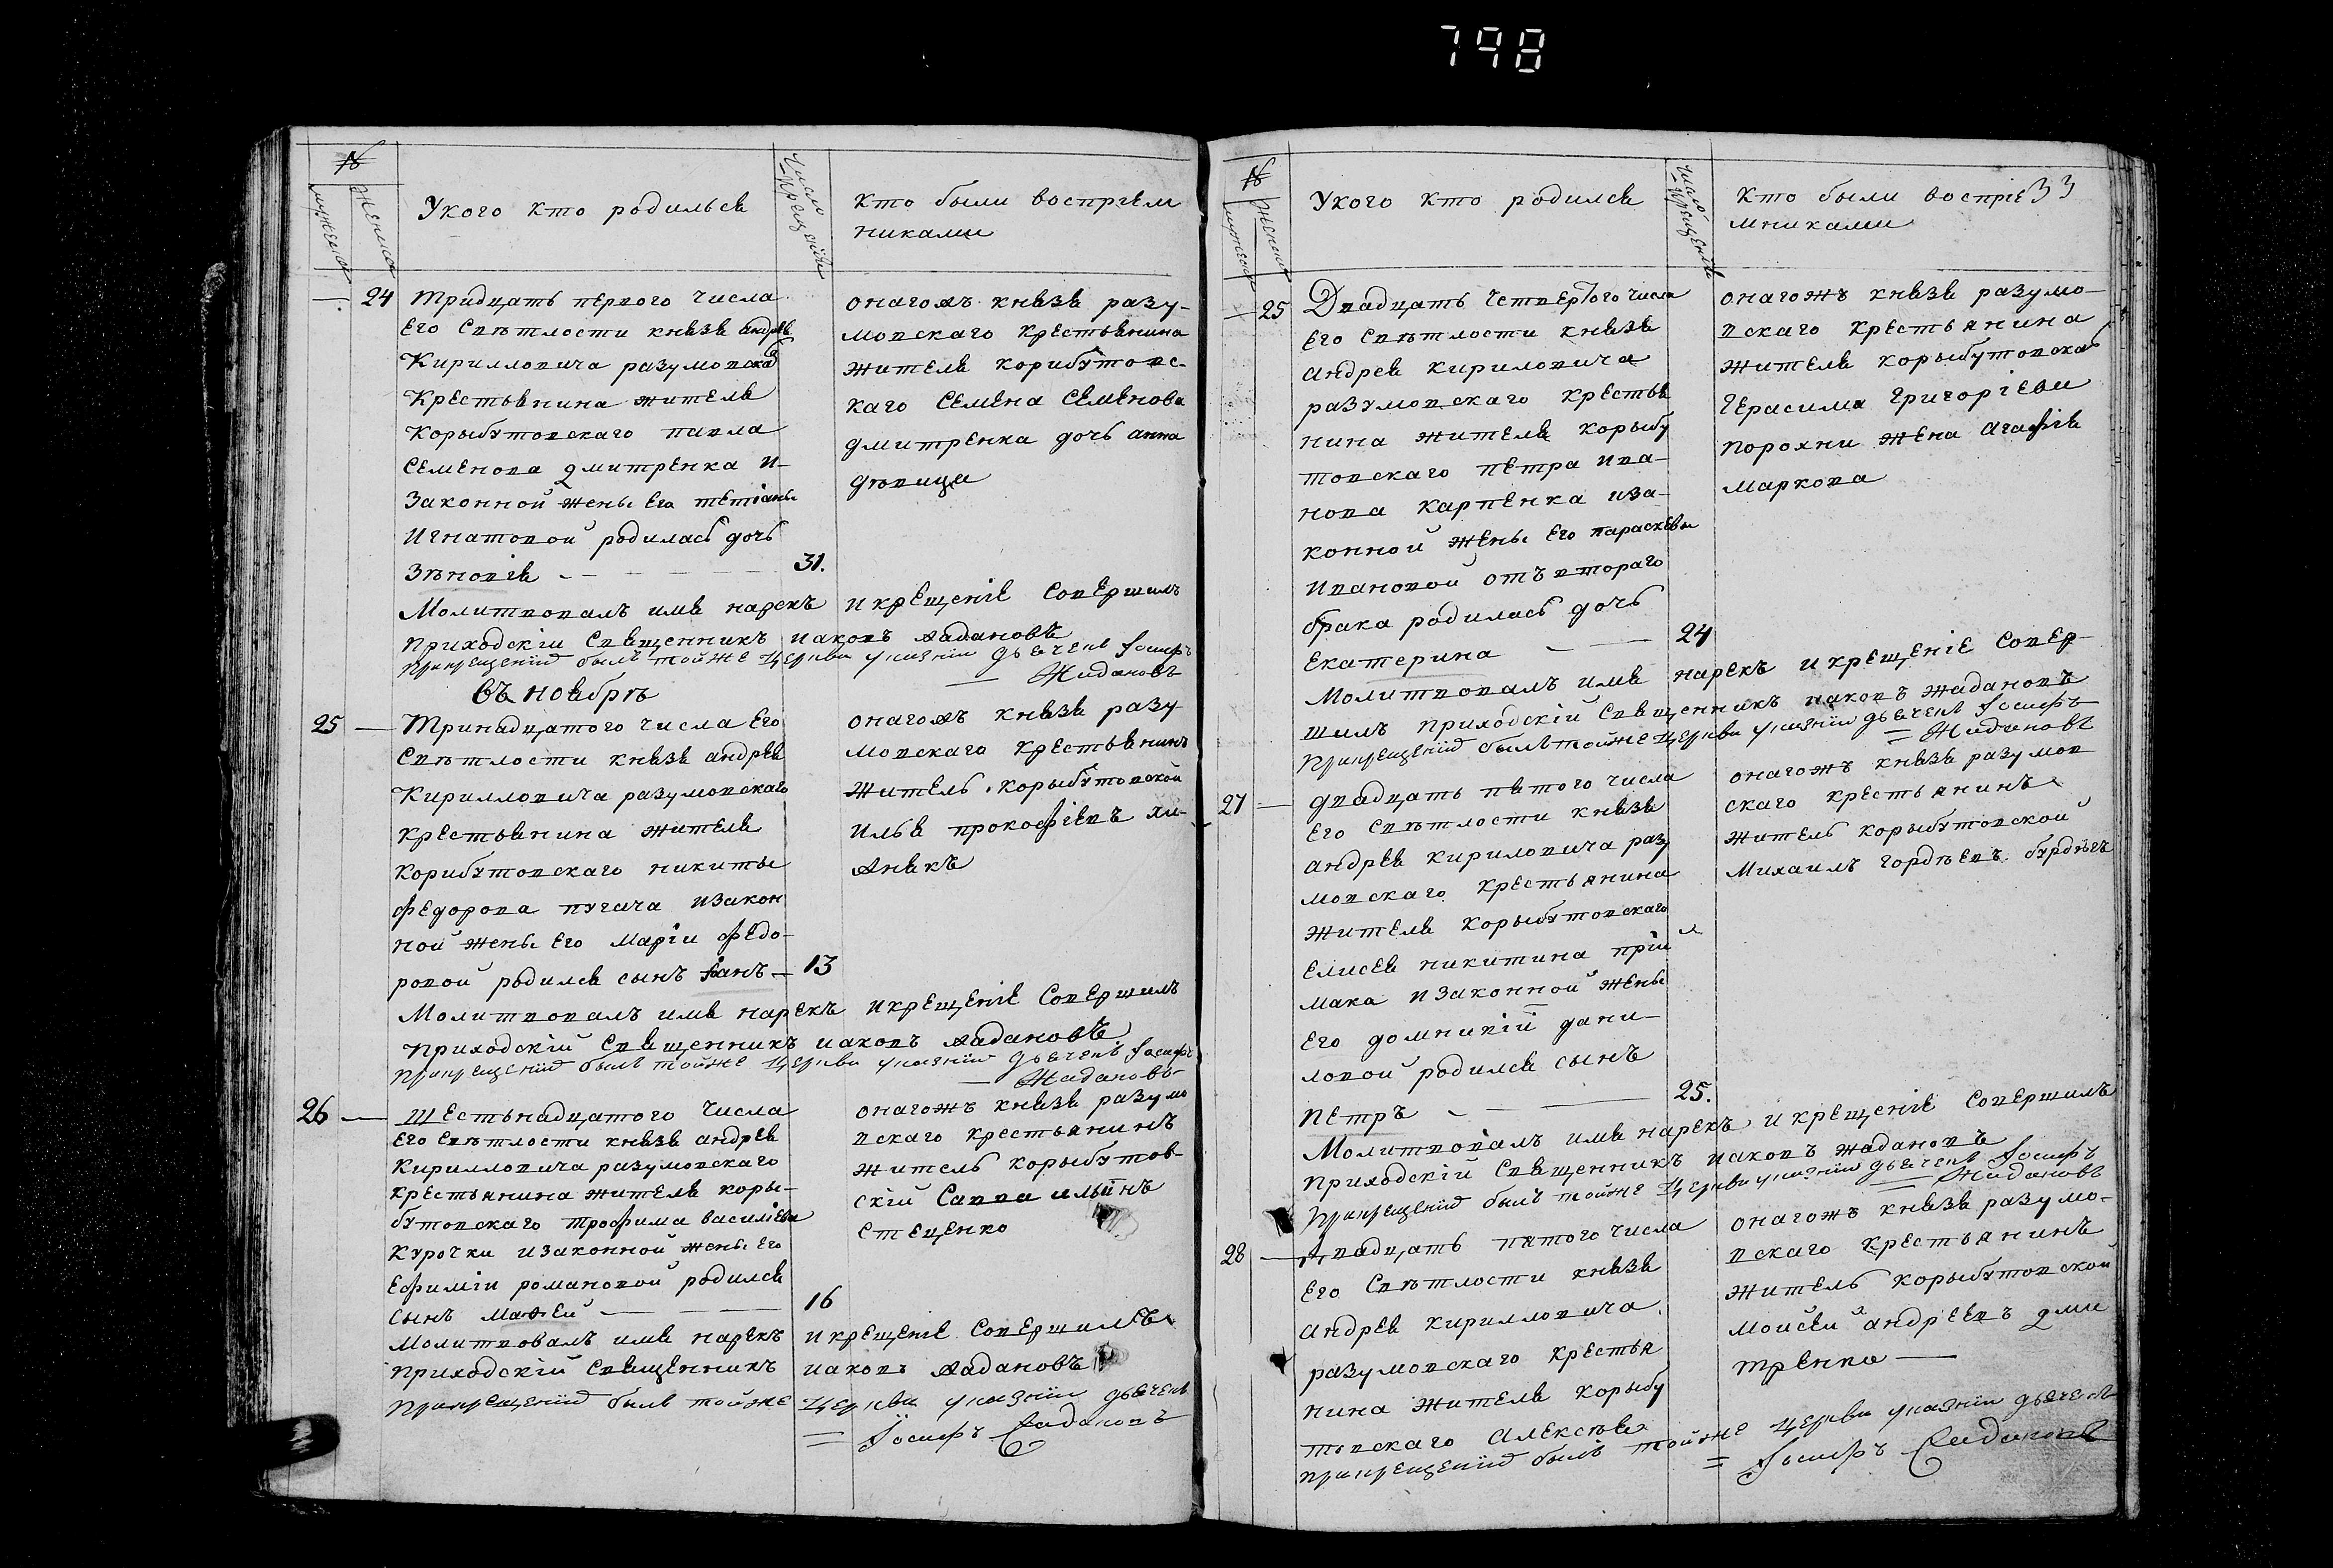 798
№
мужеска
женска
У кого кто родилься
Число крещенія
кто были воспріем
никами
24 Тридцать первого числа
Его Свѣтлости князя андрея
Кирилловича разумовска
Крестьянина жителя
Корыбутовскаго павла
Семенова дмитренка и
Законной жены Его тетіаны
Игнатовой родилась дочь
Зѣновія
31.
онагожъ князя разу-
мовскаго крестьянина
жителя корибутовс-
каго Семена Семенова
дмитренка дочь анна
дѣвица
Молитвовалъ имя нарекъ и крещеніе Совершилъ
приходскій Священникъ иаковъ жадановъ
При крещеніи былъ тойже церкви указній дьячекъ Іосифъ
Жадановъ
Въ ноябрѣ
25 Тринадцатого числа Его
Свѣтлости князя андрея
Кирилловича разумовскаго
крестьянина жителя
корибутовскаго никиты
федорова пугача и закон
ной жены Его маріи федо-
ровой родился сынъ Іоанъ
13
онагожъ князя разу
мовскаго крестьянинъ
житель корыбутовской
илья прокофіевъ хи-
жнякъ
Молитвовалъ имя нарекъ и крещеніе Совершилъ
приходскій Священникъ иаковъ жадановъ
При крещеніи былъ тойже церкви указній дьячекъ Іосифъ
Жадановъ
26 Шестьнадцатого числа
Его Свѣтлости князя андрея
Кирилловича разумовскаго
крестьянина жителя коры-
бутовскаго трофима василіева
курочки и законной жены Его
Ефиміи романовой родился
сынъ Матѳей
16
онагожъ князя разумо
вскаго крестьянинъ
житель корыбутов-
скій Савва ильинъ
Стеценко
молитвовалъ имя нарекъ и крещеніе Совершилъ
приходскій Священникъ иаковъ жадановъ
При крещеніи былъ тойже церкви указній дьячекъ
Іосифъ Жадановъ
№
мужеска
женска
У кого кто родился
Число крещенія
кто были воспріе
мниками
33
25 Двадцать четвертого числа
Его Свѣтлости князя
андрея кириловича
разумовскаго крестья
нина жителя корыбу
товскаго петра ива-
нова карпенка и за-
конной жены Его параскевы
ивановой отъ втораго
брака родилась дочь
Екатерина
24
онагожъ князя разумо-
вскаго крестьянина
жителя корыбутовска
герасима григоріеви
порохни жена агафія
маркова
Молитвовалъ имя нарекъ и крещеніе Совер-
шилъ приходскій Священникъ иаковъ жадановъ
При крещеніи былъ тойже церкви указній дьячекъ Іосифъ
Жадановъ
27 двадцать пятого числа
Его Свѣтлости князя
андрея кириловича разу
мовскаго крестьянина
жителя корыбутовскаго
Елисея никитина прій
мака и законной жены
Его домникій дани-
ловой родился сынъ
петръ
25.
онагожъ князя разумов
скаго крестьянинъ
житель корыбутовской
михаилъ гордѣевъ бурдѣгъ
Молитвовалъ имя нарекъ и крещеніе Совершилъ
приходскій Священникъ иаковъ жадановъ
При крещеніи былъ тойже церкви указній дьячекъ Іосифъ
Жадановъ
28 Двадцать пятого числа
Его Свѣтлости князя
андрея кирилловича
разумовскаго крестья
нина жителя корыбу
товскаго алексѣя
онагожъ князя разумо-
вскаго крестьянинъ
житель корыбутовской
мойсей андреевъ дми
тренко
При крещеніи былъ тойже церкви указній дьячекъ
Іосифъ Жадановъ